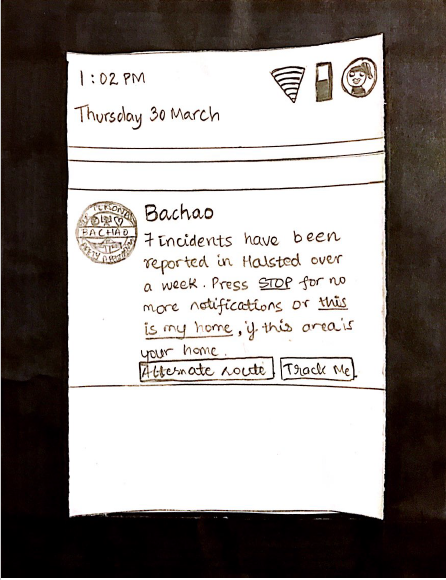 1:02 PM
Thursday 30 March
BACHAO
Bachao
7 Incidents have been
reported in Halsted over
a week. Press STOP for no
more notifications or this
is my home, if this area is
your home.
Alternate route Track Me